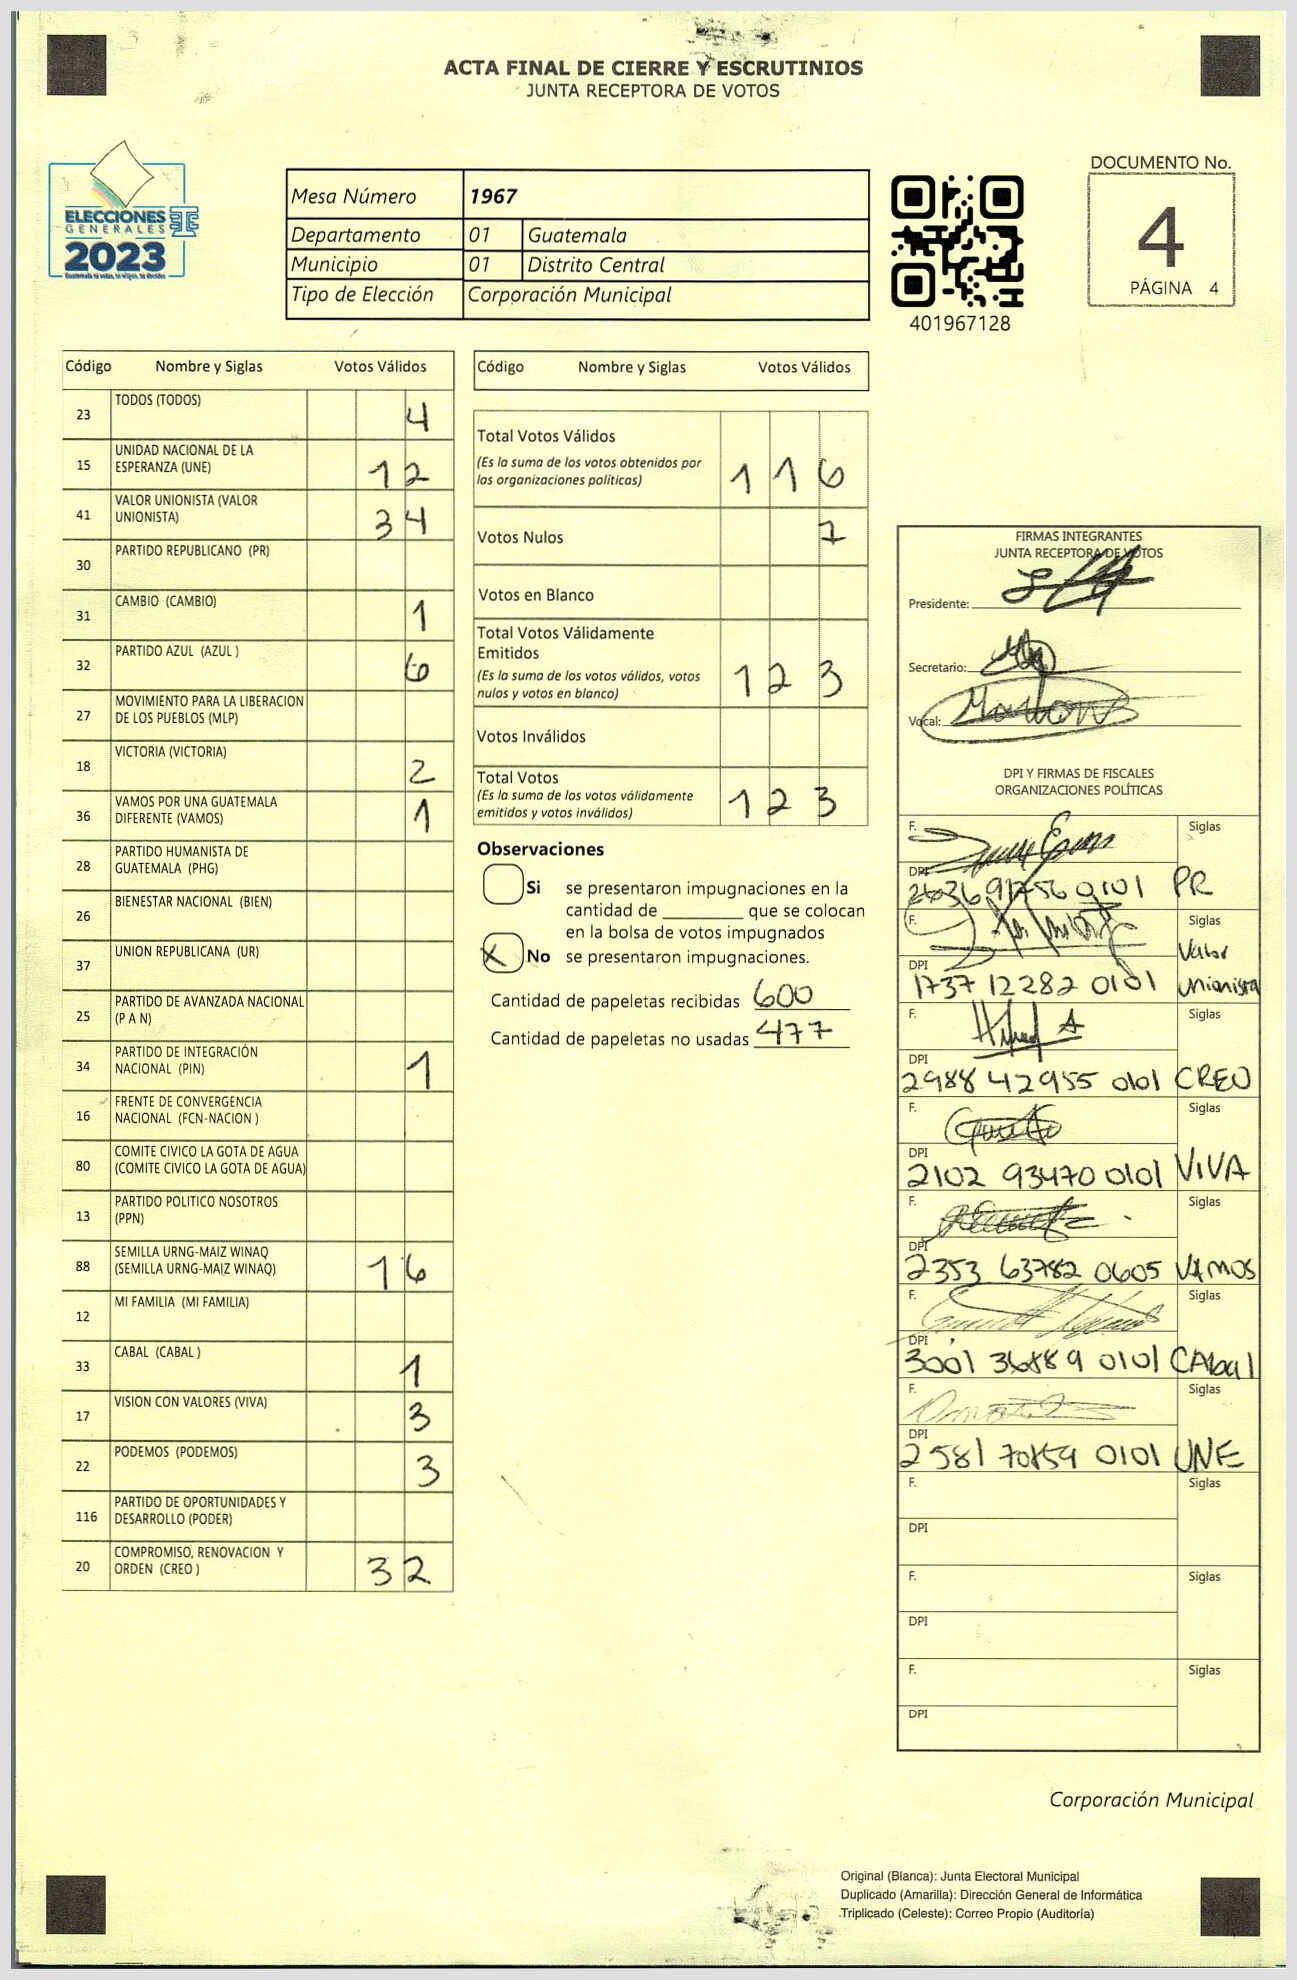 ACTA FINAL DE CIERRE Y ESCRUTINIOS
JUNTA RECEPTORA DE VOTOS
ELECCIONES
GENERALES
2023
Mesa Número 1967
Departamento 01 Guatemala
Municipio 01 Distrito Central
Tipo de Elección Corporación Municipal
401967128
DOCUMENTO No.
4
PÁGINA 4
Código Nombre y Siglas Votos Válidos
23 TODOS (TODOS) 4
15 UNIDAD NACIONAL DE LA
ESPERANZA (UNE) 12
41 VALOR UNIONISTA (VALOR
UNIONISTA) 34
30 PARTIDO REPUBLICANO (PR)
31 CAMBIO (CAMBIO) 1
32 PARTIDO AZUL (AZUL ) 6
27 MOVIMIENTO PARA LA LIBERACION
DE LOS PUEBLOS (MLP)
18 VICTORIA (VICTORIA) 2
36 VAMOS POR UNA GUATEMALA
DIFERENTE (VAMOS) 1
28 PARTIDO HUMANISTA DE
GUATEMALA (PHG)
26 BIENESTAR NACIONAL (BIEN)
37 UNION REPUBLICANA (UR)
25 PARTIDO DE AVANZADA NACIONAL
(P A N)
34 PARTIDO DE INTEGRACIÓN
NACIONAL (PIN) 1
16 FRENTE DE CONVERGENCIA
NACIONAL (FCN-NACION )
80 COMITE CIVICO LA GOTA DE AGUA
(COMITE CIVICO LA GOTA DE AGUA)
13 PARTIDO POLITICO NOSOTROS
(PPN)
88 SEMILLA URNG-MAIZ WINAQ
(SEMILLA URNG-MAIZ WINAQ) 16
12 MI FAMILIA (MI FAMILIA)
33 CABAL (CABAL ) 1
17 VISION CON VALORES (VIVA) 3
22 PODEMOS (PODEMOS) 3
116 PARTIDO DE OPORTUNIDADES Y
DESARROLLO (PODER)
20 COMPROMISO, RENOVACION Y
ORDEN (CREO ) 32
Código Nombre y Siglas Votos Válidos
Total Votos Válidos
(Es la suma de los votos obtenidos por
las organizaciones políticas) 116
Votos Nulos 7
Votos en Blanco
Total Votos Válidamente
Emitidos
(Es la suma de los votos válidos, votos
nulos y votos en blanco) 123
Votos Inválidos
Total Votos
(Es la suma de los votos válidamente
emitidos y votos inválidos) 123
Observaciones
Si se presentaron impugnaciones en la
cantidad de ________ que se colocan
en la bolsa de votos impugnados
X No se presentaron impugnaciones.
Cantidad de papeletas recibidas 600
Cantidad de papeletas no usadas 477
FIRMAS INTEGRANTES
JUNTA RECEPTORA DE VOTOS
Presidente:
Secretario:
Vocal:
DPI Y FIRMAS DE FISCALES
ORGANIZACIONES POLÍTICAS
F. Siglas
DPI 0101 PR
F. Siglas
Valor
DPI 1737 12282 0101 Unionista
F. Siglas
DPI
2988 42955 0101 CREO
F. Siglas
DPI
2102 93470 0101 VIVA
F. Siglas
DPI
2353 63782 0605 VAMOS
F. Siglas
DPI
3001 36889 0101 CAbal
F. Siglas
DPI
2581 70859 0101 UNE
F. Siglas
DPI
F. Siglas
DPI
F. Siglas
DPI
Corporación Municipal
Original (Blanca): Junta Electoral Municipal
Duplicado (Amarilla): Dirección General de Informática
Triplicado (Celeste): Correo Propio (Auditoría)